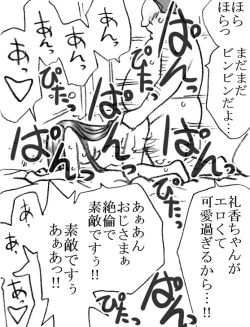 ほら
ほらっ
まだまだ
ビンビンだよ…
あんっ
あんっ
あんっ
あっ♡
ぱんっ
ぴたっ
ぱんっ
ぴたっ
ぱんっ
ぴたっ
ぱんっ
礼香ちゃんが
エロくて
可愛過ぎるから…!!
あぁあん
おじさまぁ
絶倫で
素敵ですぅ!!
素敵ですぅ
あぁあっ!!
あっ
あっ
あっ♡